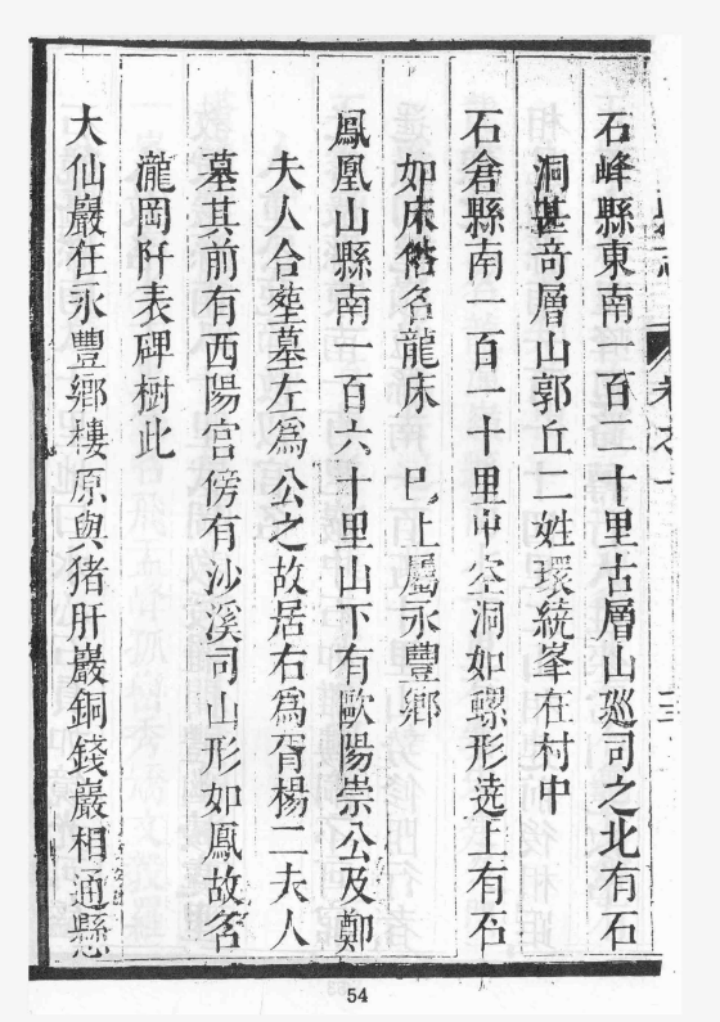 石峰縣東南一百二十里古層山廵司之北有石
洞甚奇層山郭丘二姓環繞峯在村中
石倉縣南一百一十里中空洞如螺形遶上有石
如床俗名龍床　巳上屬永豐鄉
鳳凰山縣南一百六十里山下有歐陽崇公及鄭
夫人合塟墓左爲公之故居右爲胥楊二夫人
墓其前有西陽宫傍有沙溪司山形如鳳故名
瀧岡阡表碑樹此
大仙巖在永豐鄉樓原與猪肝巖銅錢巖相通懸
54